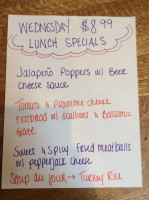 WEDNESDAY $8.99
LUNCH SPECIALS
Jalapeño Poppers w/ Beer
cheese sauce
Tomato & Pepperoni cheese
Flatbread w/ scallions & Balsamic
Glaze
Sweet & Spicy fried meatballs
w/ pepperjack cheese
Soup du jour → Turkey Rice